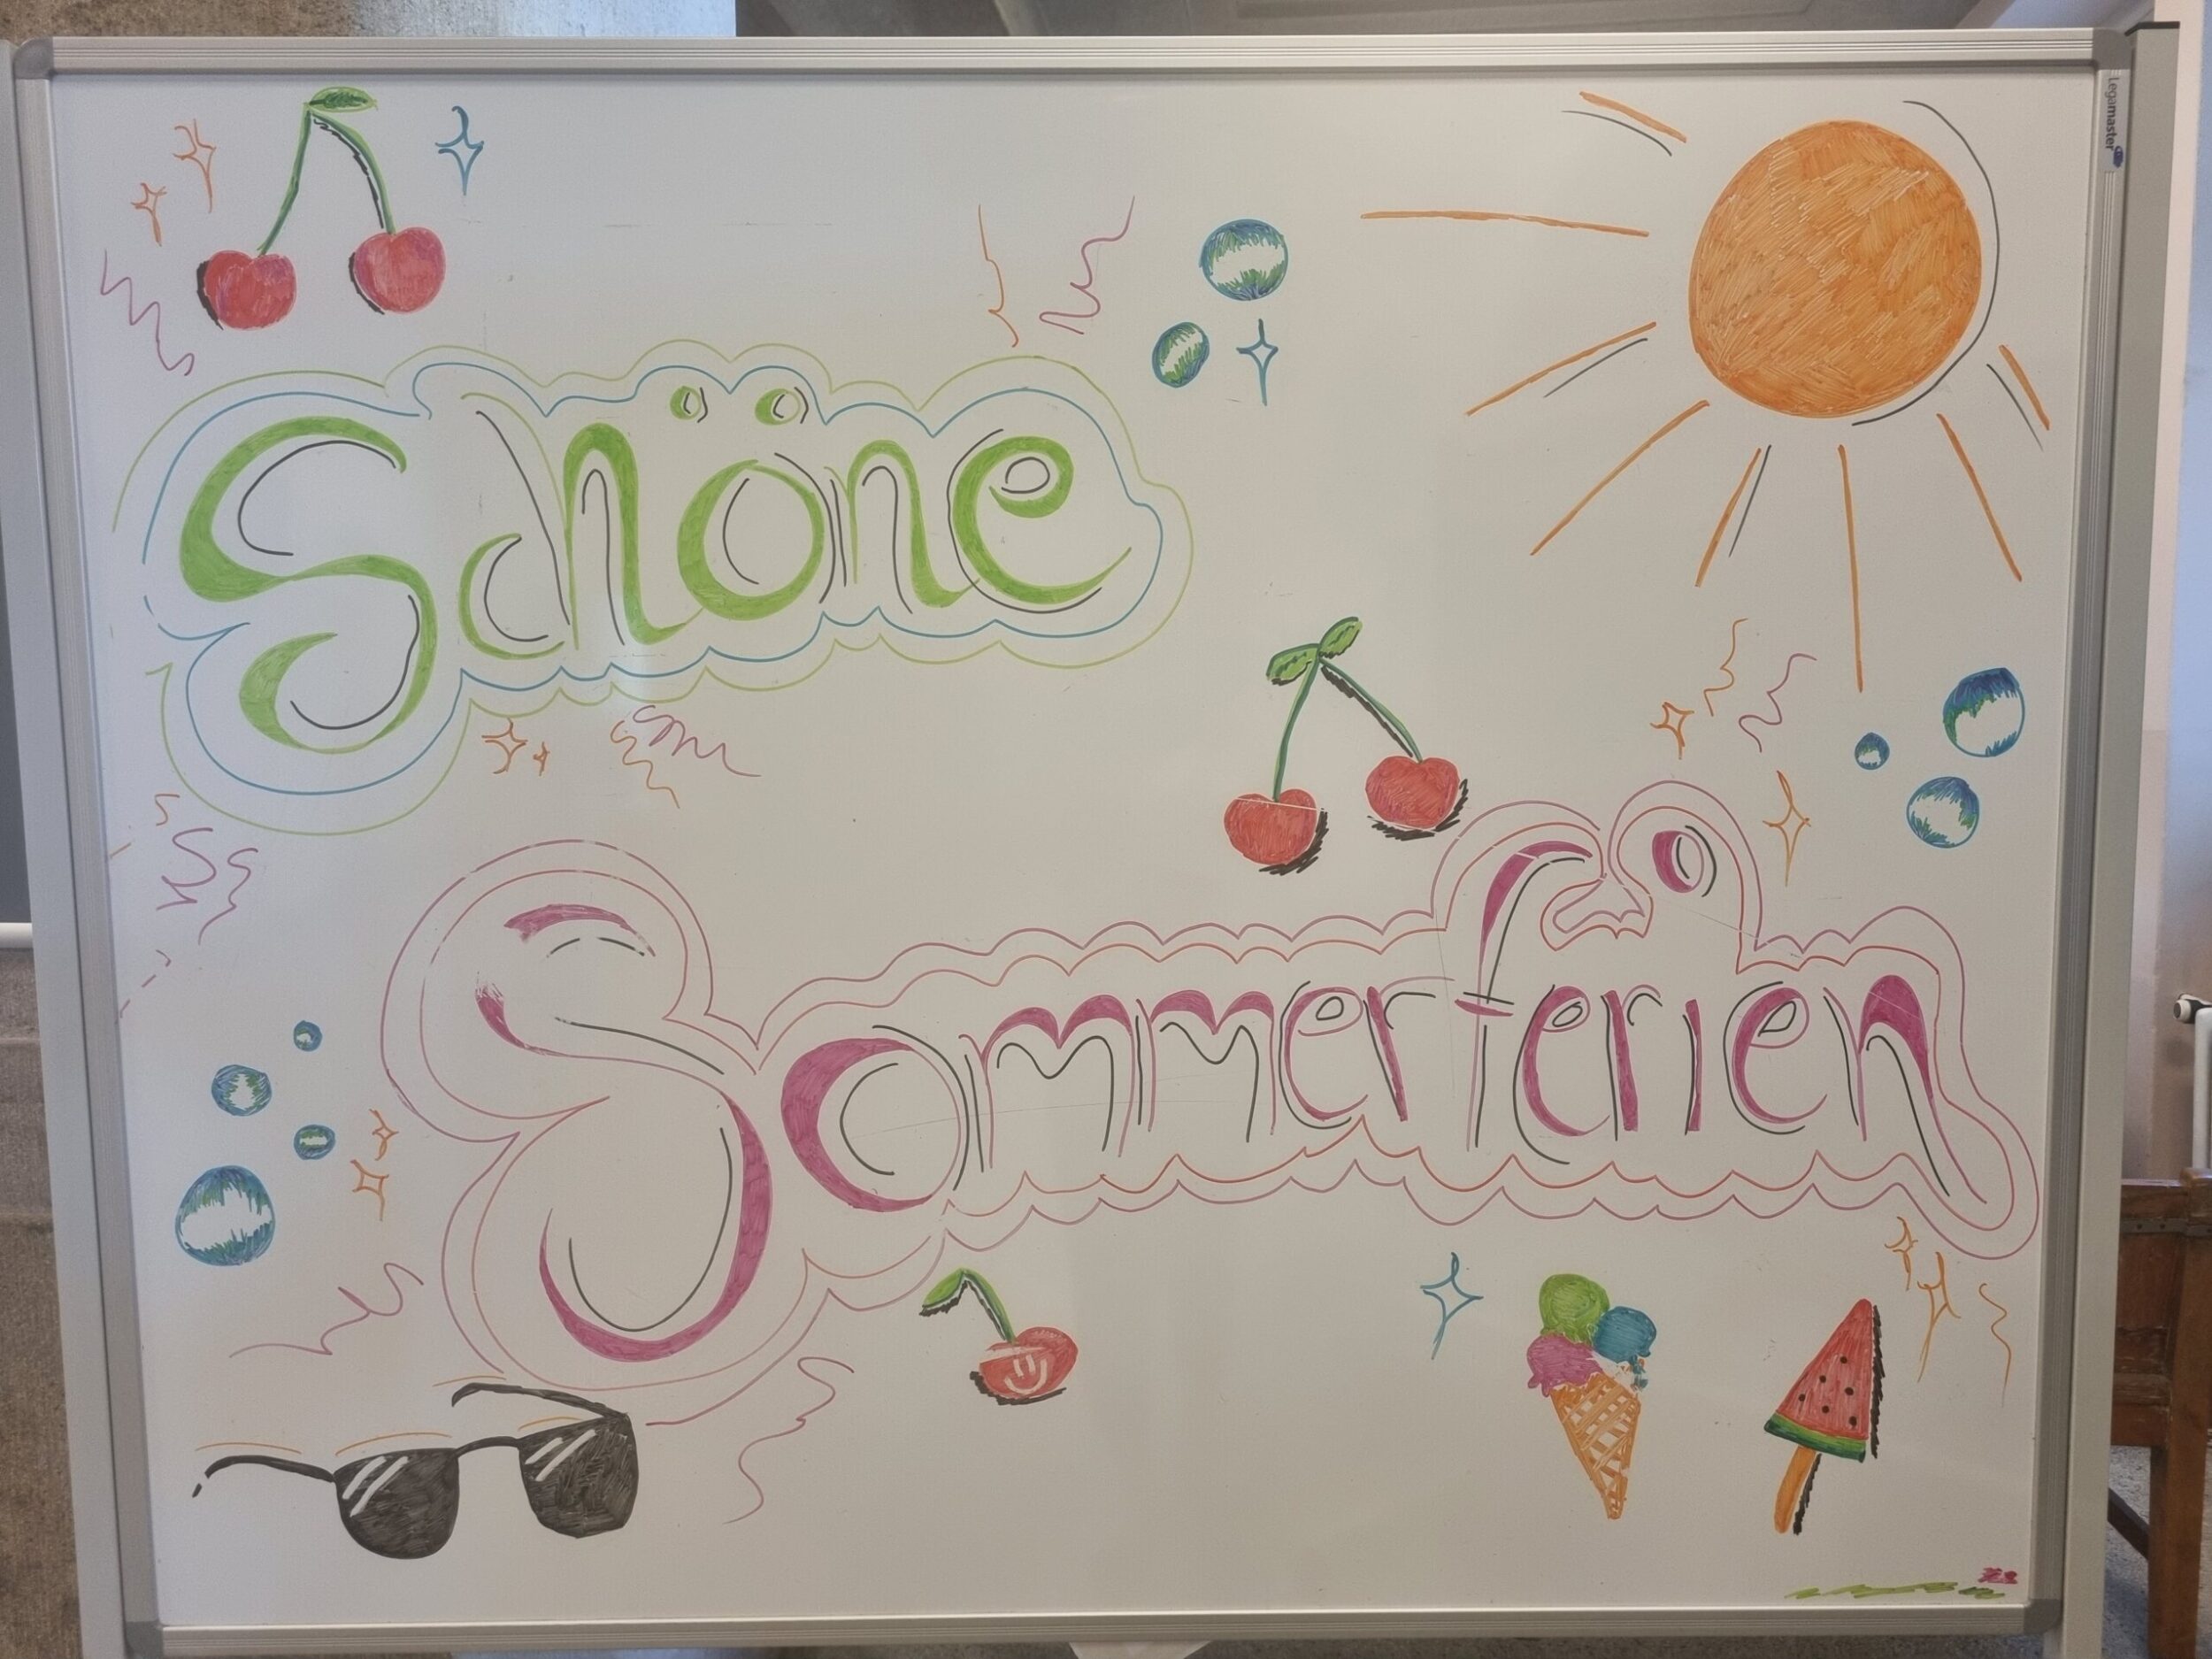 Legamaster
Schöne
Sommerferien